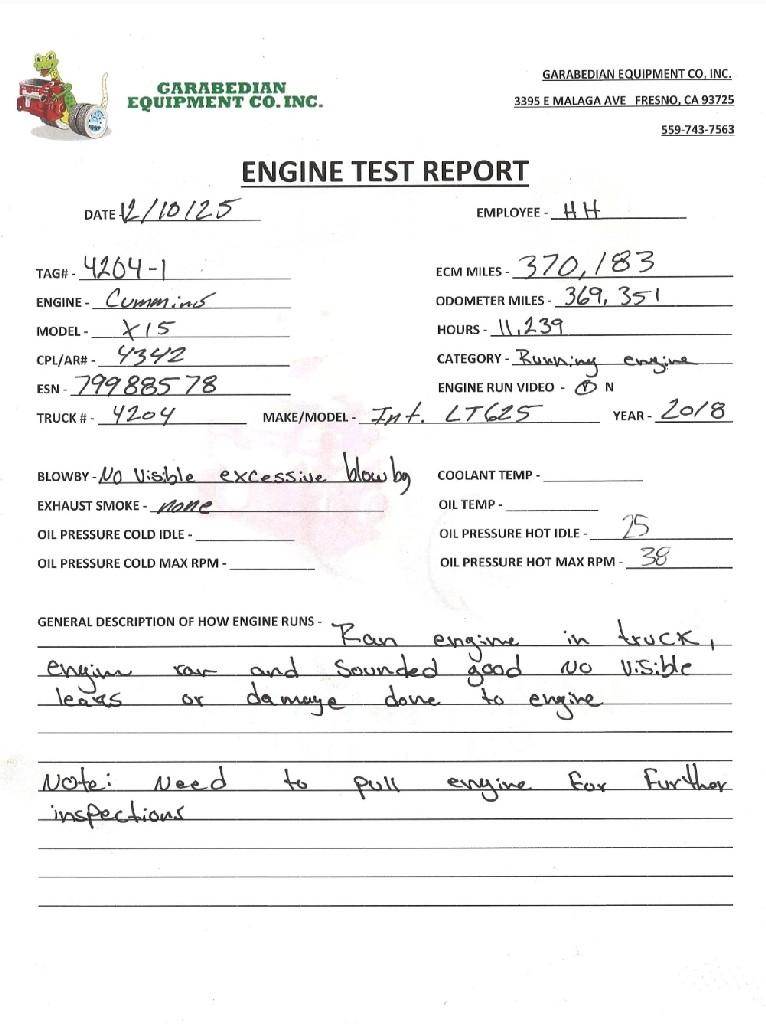 GARABEDIAN
EQUIPMENT CO. INC.
GARABEDIAN EQUIPMENT CO. INC.
3395 E MALAGA AVE FRESNO, CA 93725
559-743-7563
ENGINE TEST REPORT
DATE 12/10/25 EMPLOYEE - HH
TAG# - 4204-1 ECM MILES - 370,183
ENGINE - Cummins ODOMETER MILES - 369,351
MODEL - X15 HOURS - 11,239
CPL/AR# - 4342 CATEGORY - Running engine
ESN - 79988578 ENGINE RUN VIDEO - Y N
TRUCK # - 4204 MAKE/MODEL - Int. LT625 YEAR - 2018
BLOWBY - No Visible excessive blowby COOLANT TEMP -
EXHAUST SMOKE - none OIL TEMP -
OIL PRESSURE COLD IDLE - OIL PRESSURE HOT IDLE - 25
OIL PRESSURE COLD MAX RPM - OIL PRESSURE HOT MAX RPM - 38
GENERAL DESCRIPTION OF HOW ENGINE RUNS - Ran engine in truck,
engine ran and sounded good no visible
leaks or damage done to engine
Note: Need to pull engine for further
inspections